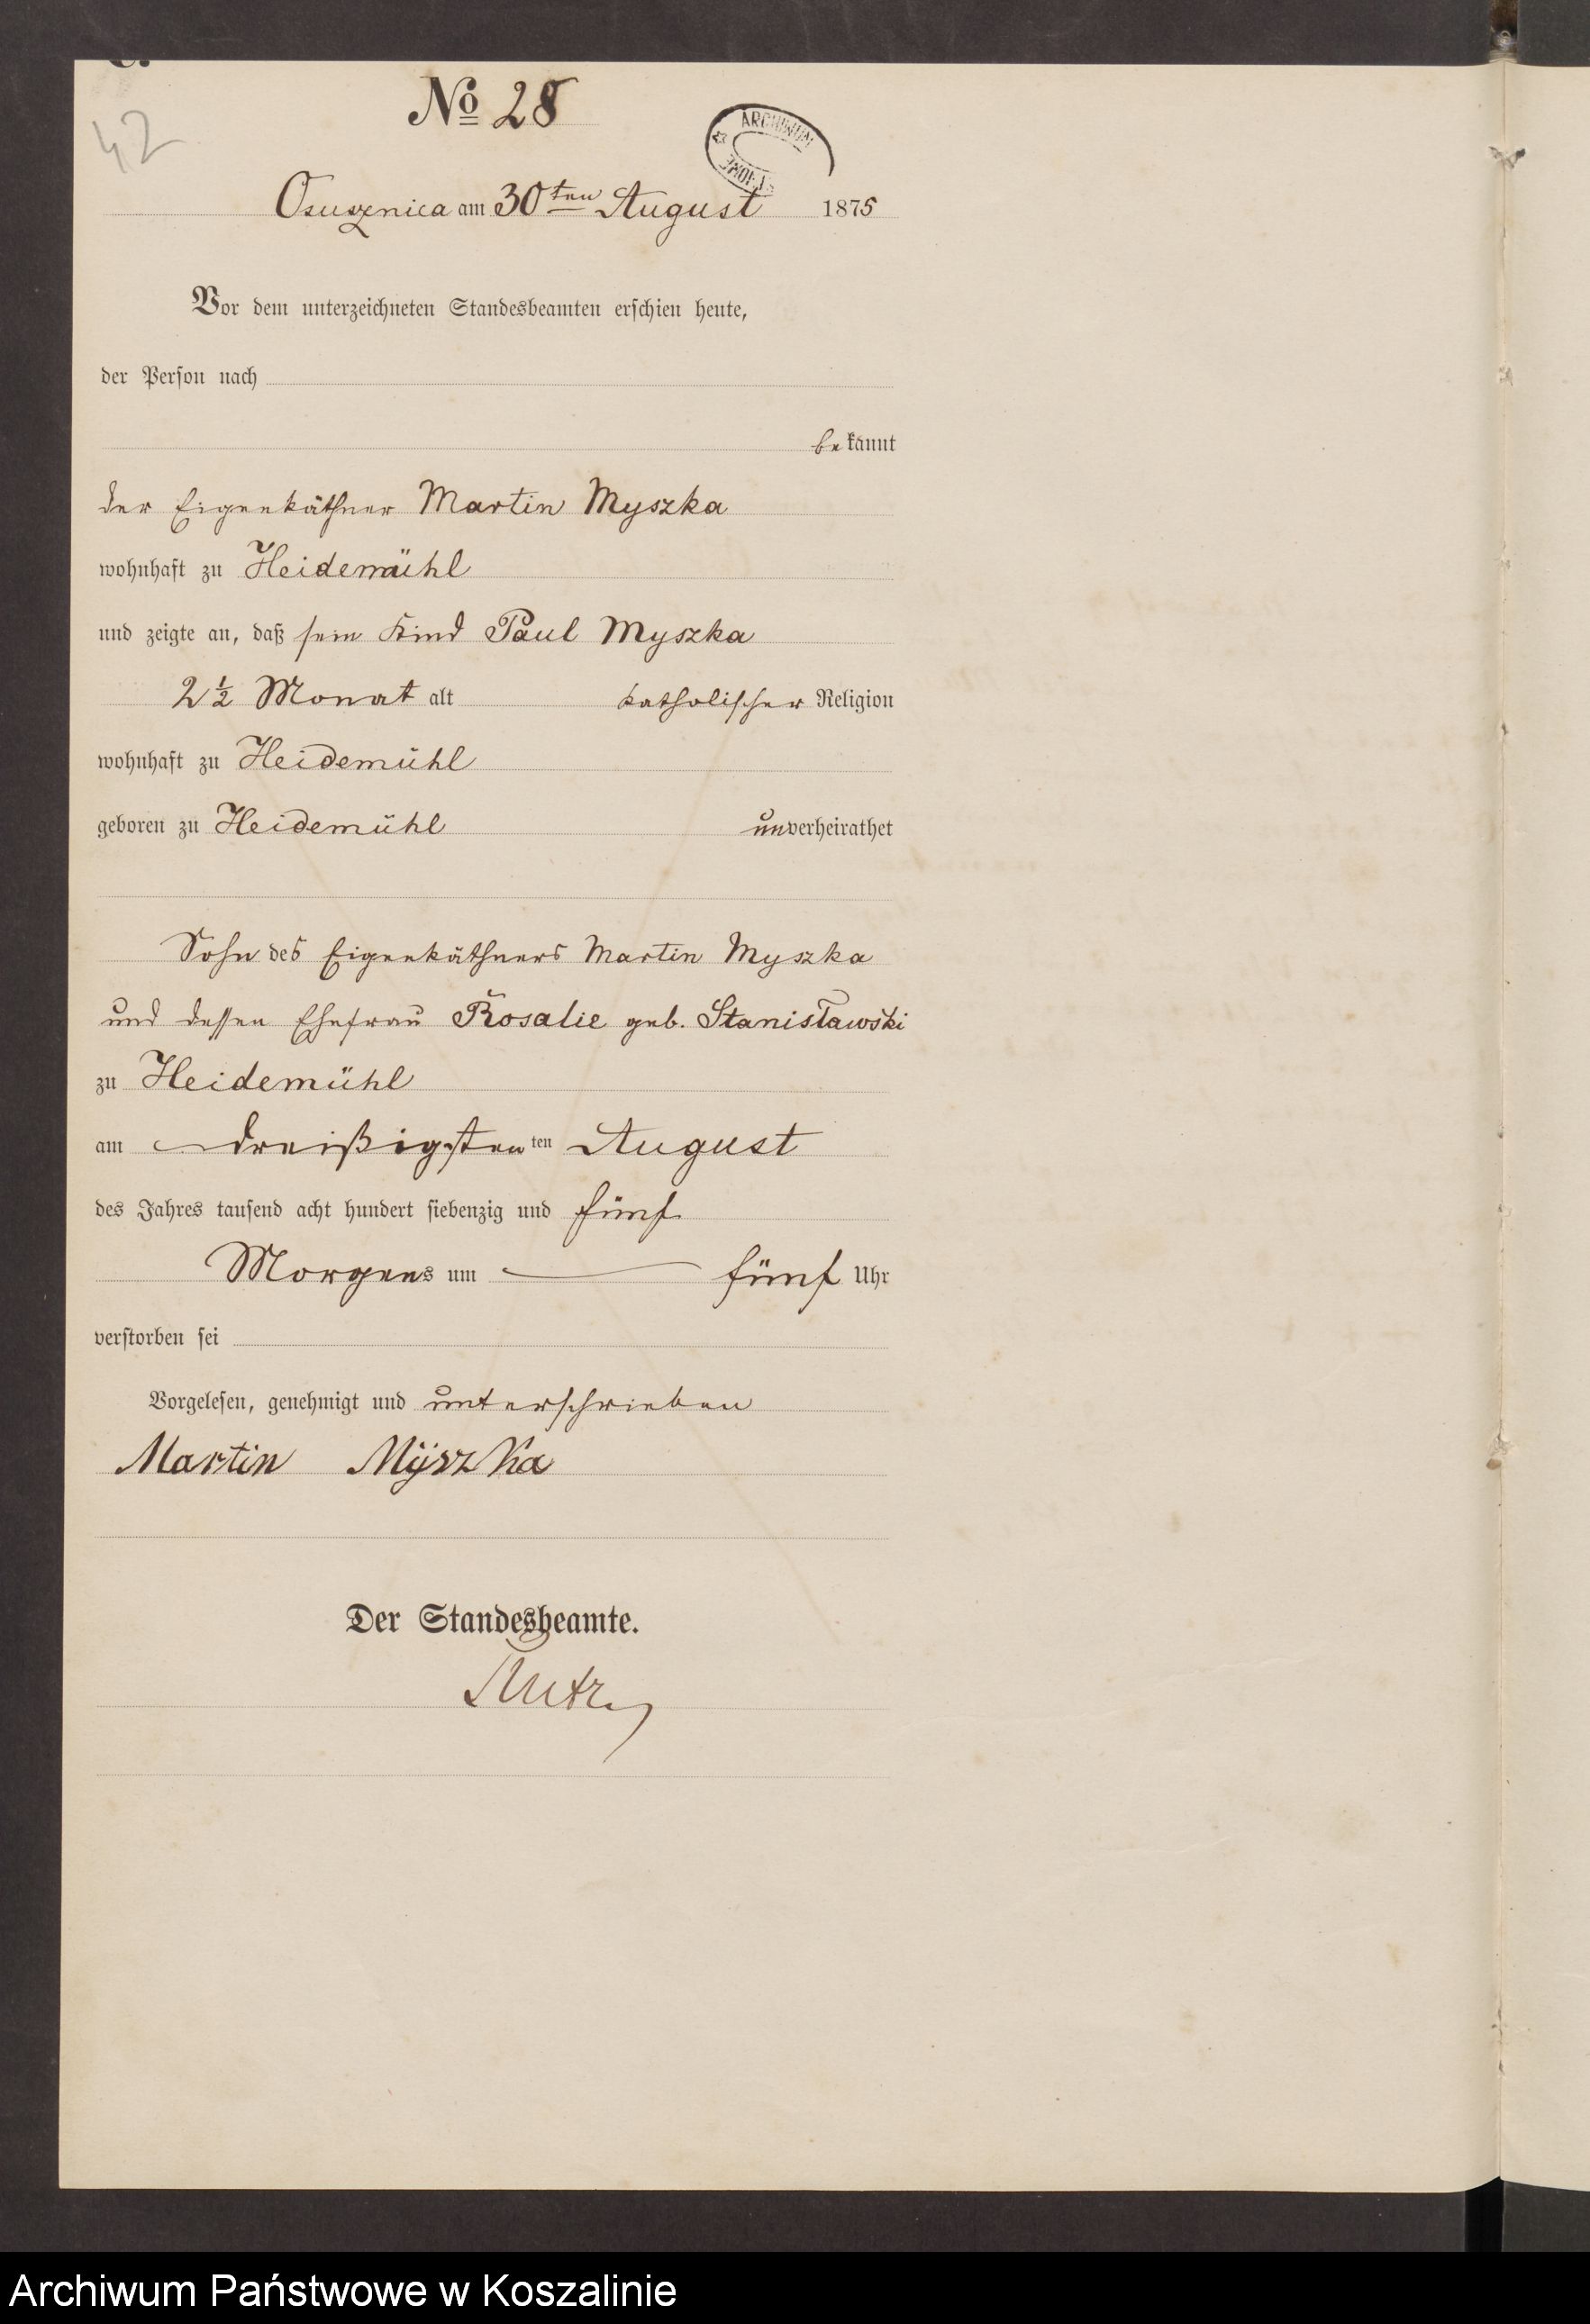 C.
42
No 28
ARCHIWUM
Osusznica am 30ten August 1875
Vor dem unterzeichneten Standesbeamten erschien heute,
der Person nach
bekannt
der Eigenkäthner Martin Myszka
wohnhaft zu Heidemühl
und zeigte an, daß sein Kind Paul Myszka
2 1/2 Monat alt katholischer Religion
wohnhaft zu Heidemühl
geboren zu Heidemühl unverheirathet
Sohn des Eigenkäthners Martin Myszka
und dessen Ehefrau Rosalie geb. Stanisławski
zu Heidemühl
am dreißigsten ten August
des Jahres tausend acht hundert siebenzig und fünf
Morgens um fünf Uhr
verstorben sei
Vorgelesen, genehmigt und unterschrieben
Martin Mÿszka
Der Standesbeamte.
Archiwum Państwowe w Koszalinie